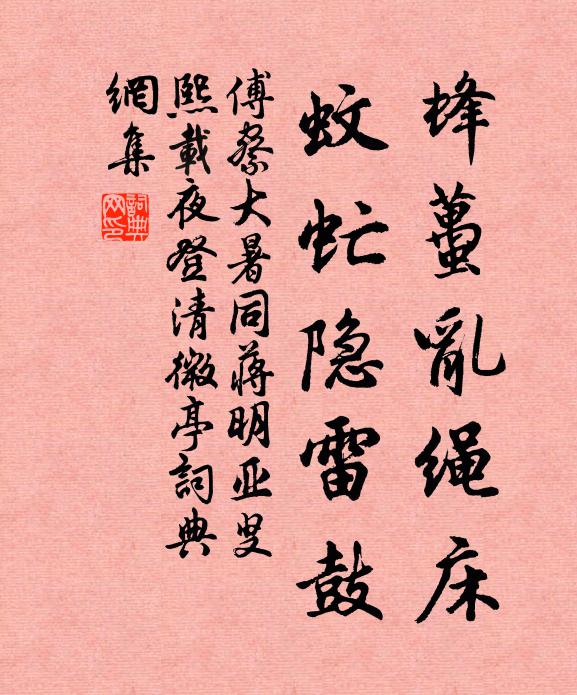 蜂蠆亂绳床
蚊虻隐雷鼓
傅察大暑同蒋明亚叟
熙載夜登清微亭詞典
網集
詞典
网印